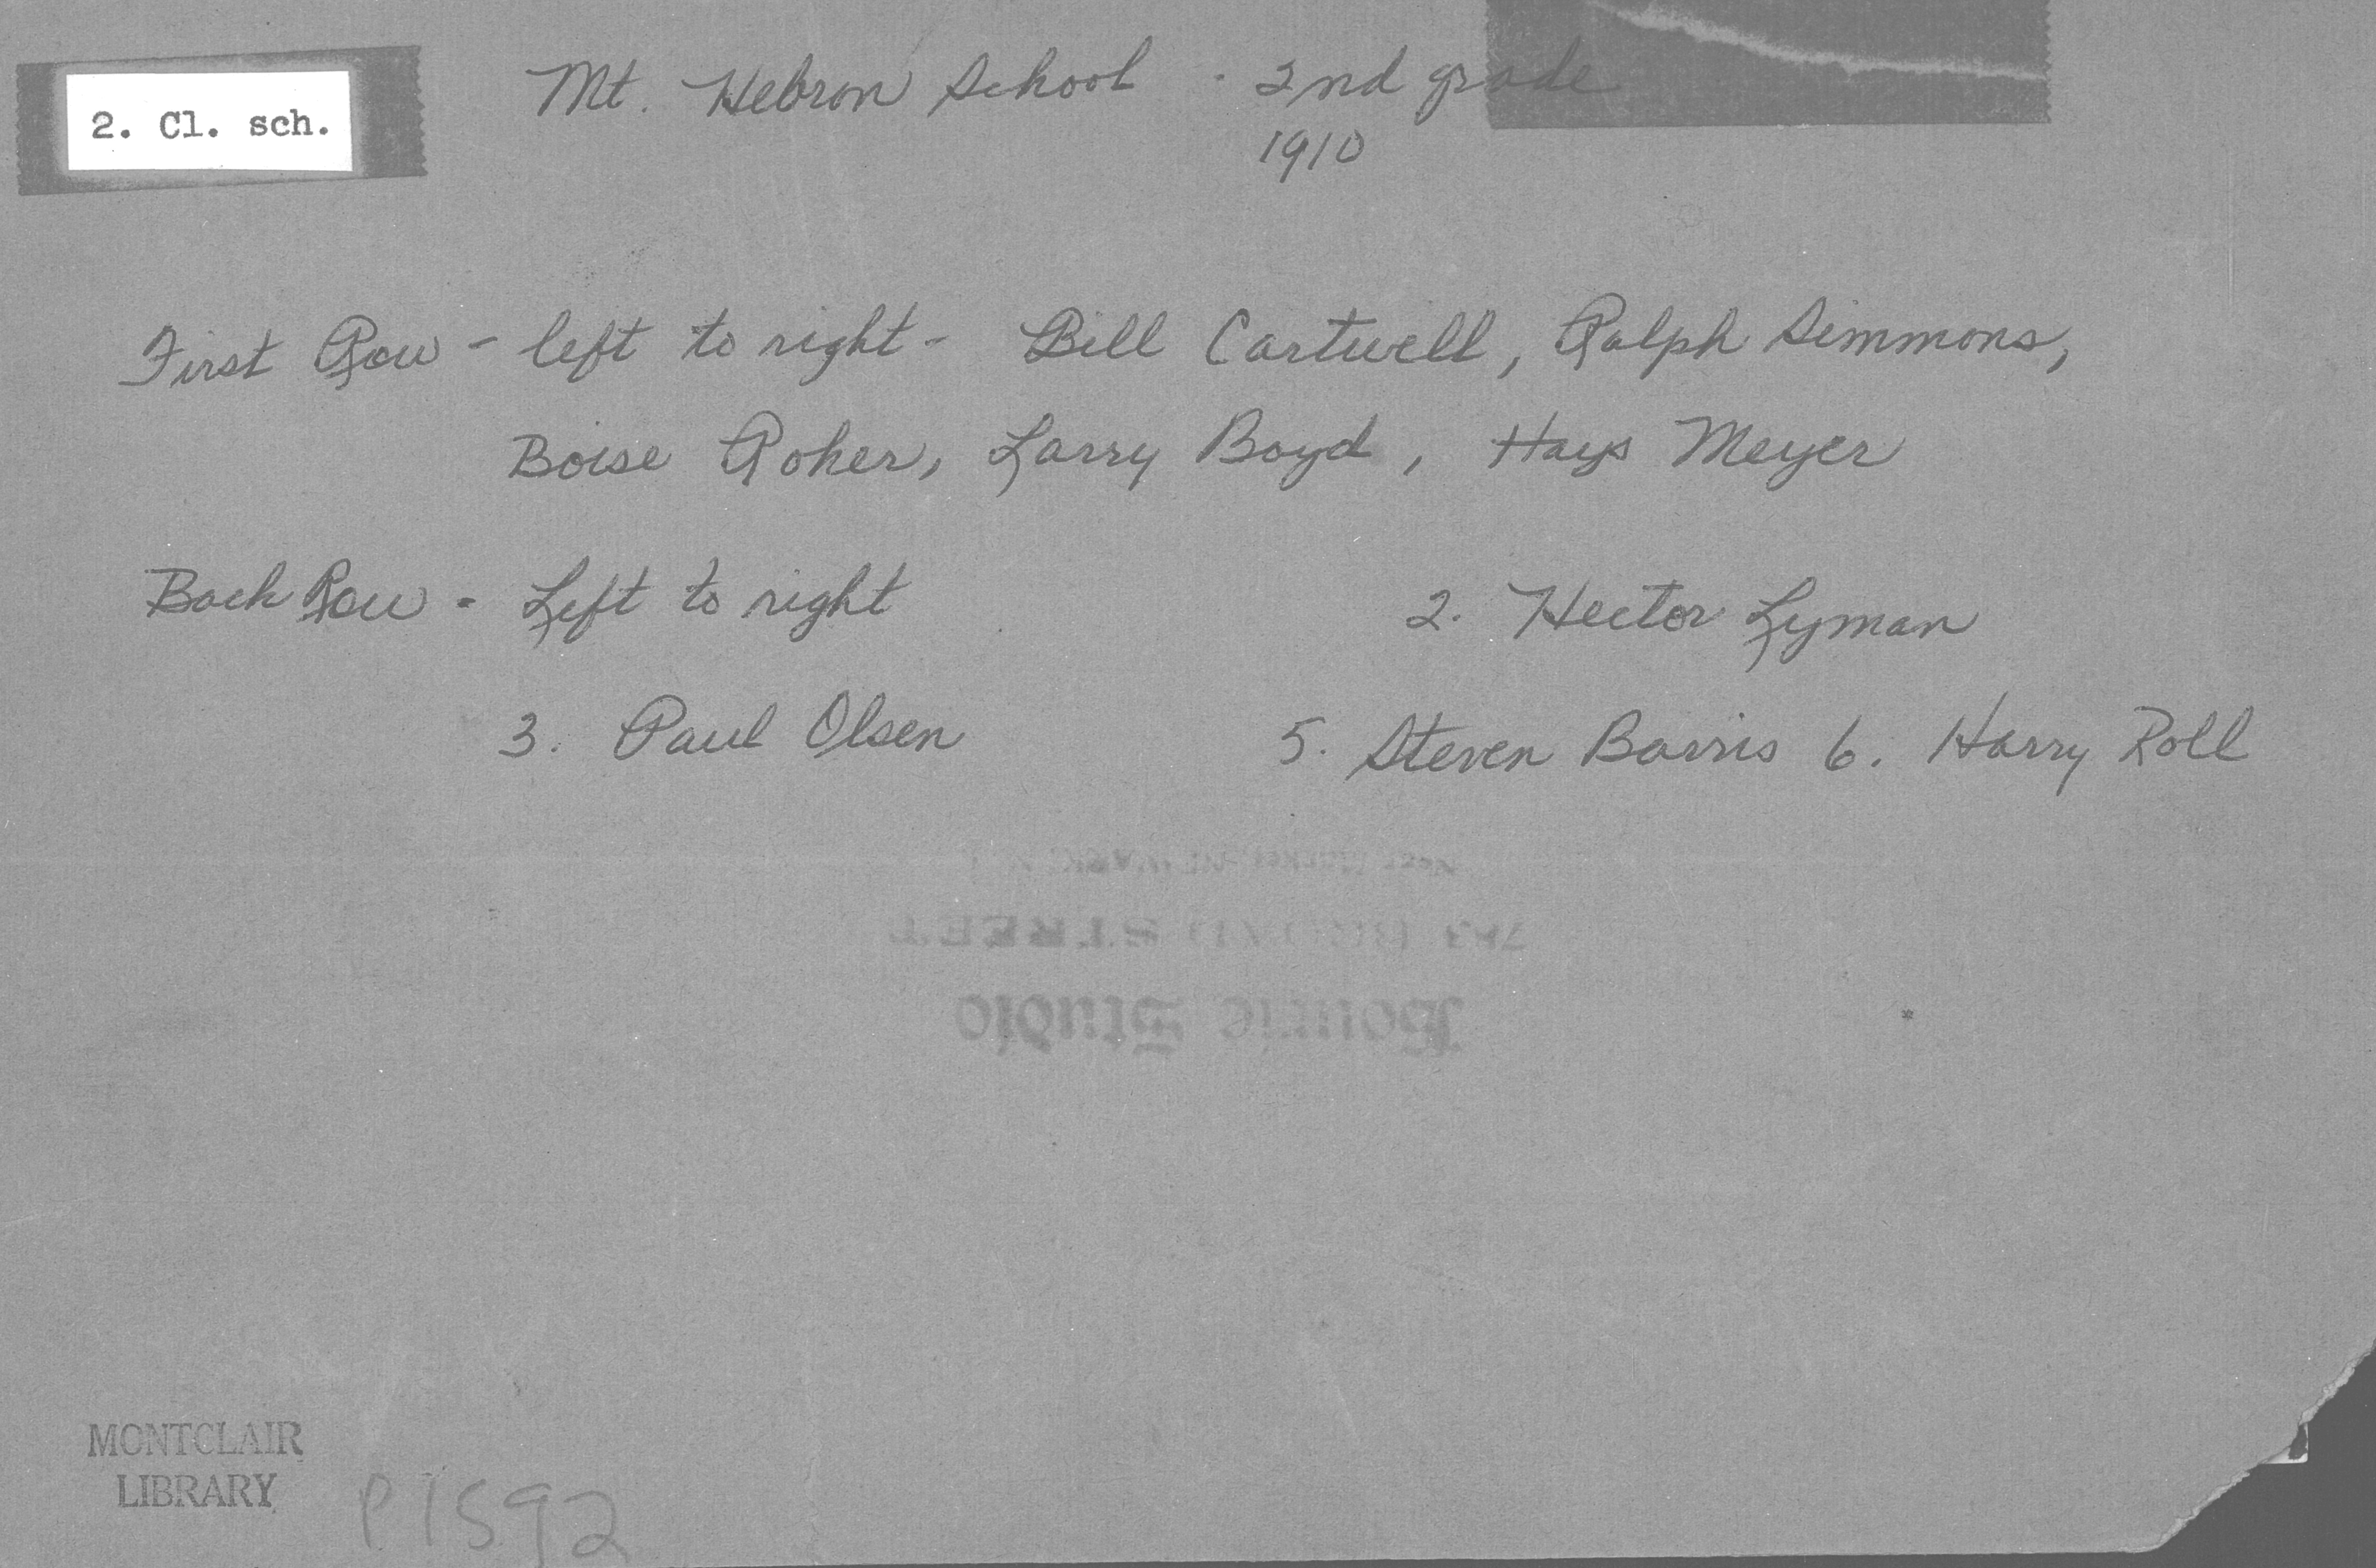 2. Cl. sch.
Mt. Hebron School - 2nd grade
1910
First Row - left to right - Bill Cartwell, Ralph Simmons,
Boise Roher, Larry Boyd, Hays Meyer
Back Row - Left to right
2. Hector Lyman
3. Paul Olsen
5. Steven Barris 6. Harry Roll
STREET
Studio
MONTCLAIR
LIBRARY
P1592